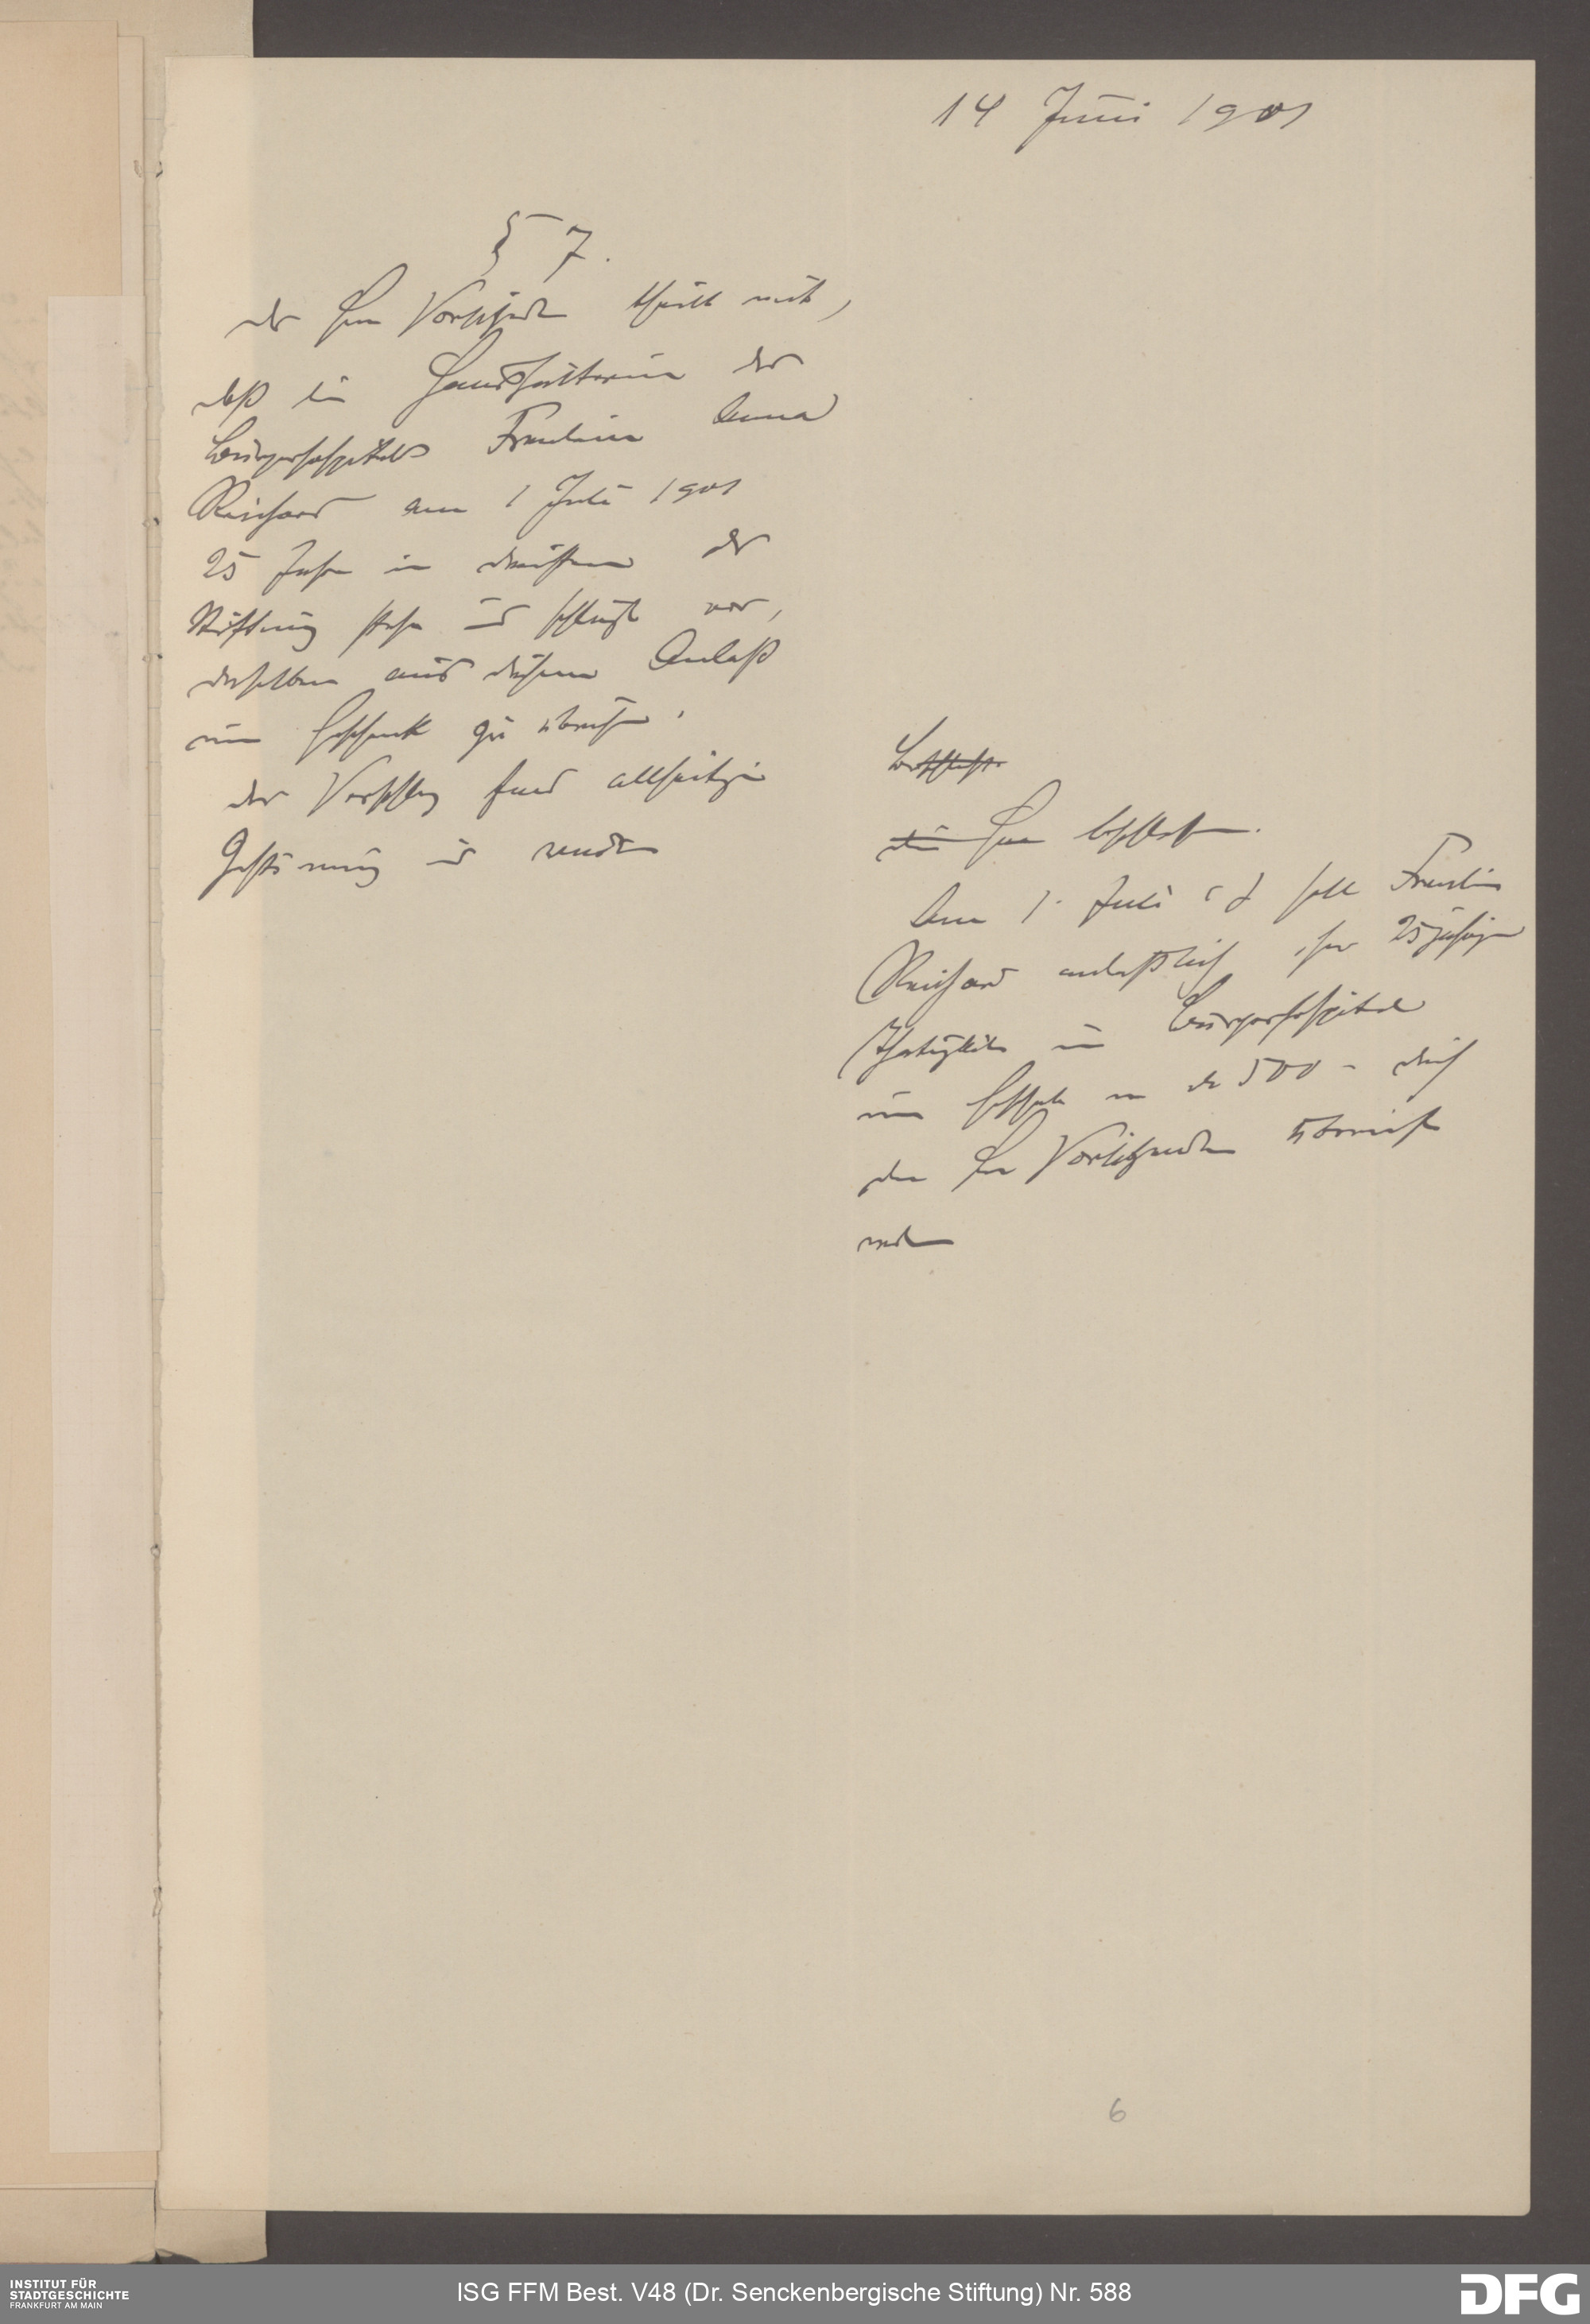 14 Juni 1901
§ 7.
der Herr Vorsitzende theilt mit,
daß die Haushälterin des
Bürgerhospitals Fräulein Anna
Reichard am 1 Juli 1901
25 Jahre in Diensten der
Stiftung stehe und schlägt vor,
derselben aus diesem Anlaß
ein Geschenk zu überreichen.
der Vorschlag fand allseitige
Zustimmung und wurde
Beschlossen
die hier beschlossen.
Am 1. Juli c J soll Fräulein
Reichard anläßlich ihrer 25jährigen
Thätigkeit im Bürgerhospital
ein Geschenk von M 500 – durch
den Herrn Vorsitzenden überreicht
werden
6
INSTITUT FÜR
STADTGESCHICHTE
FRANKFURT AM MAIN
ISG FFM Best. V48 (Dr. Senckenbergische Stiftung) Nr. 588
DFG